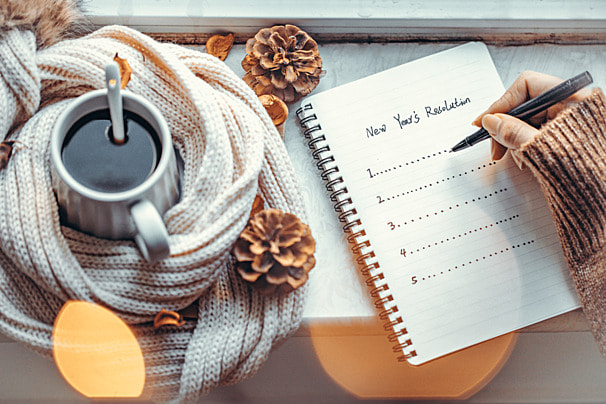 New Year's Resolution
1..................
2..................
3..................
4..................
5..................